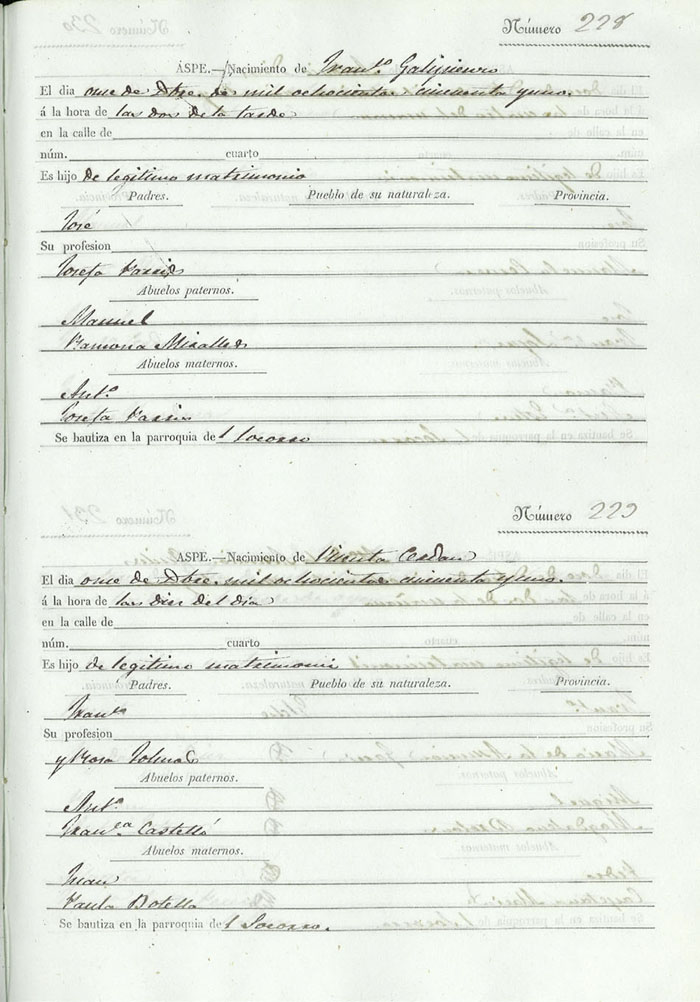 Número 228
ASPE.—Nacimiento de Fran.co Galipienso
El dia once de Dbre. de mil ochocientos cincuenta y uno.
á la hora de las dos de la tarde
en la calle de
núm. cuarto
Es hijo de legitimo matrimonio
Padres. Pueblo de su naturaleza. Provincia.
José
Su profesion
Josefa
Abuelos paternos.
Manuel
Ramona Miralles
Abuelos maternos.
Ant.o
Josefa
Se bautiza en la parroquia del Socorro
Número 229
ASPE.—Nacimiento de Vicenta Cerdan
El dia once de Dbre. mil ochocientos cincuenta y uno.
á la hora de las diez del dia
en la calle de
núm. cuarto
Es hijo de legitimo matrimonio
Padres. Pueblo de su naturaleza. Provincia.
Fran.co
Su profesion
y Rosa
Abuelos paternos.
Ant.o
Fran.ca Castelló
Abuelos maternos.
Juan
Paula Botella
Se bautiza en la parroquia del Socorro.